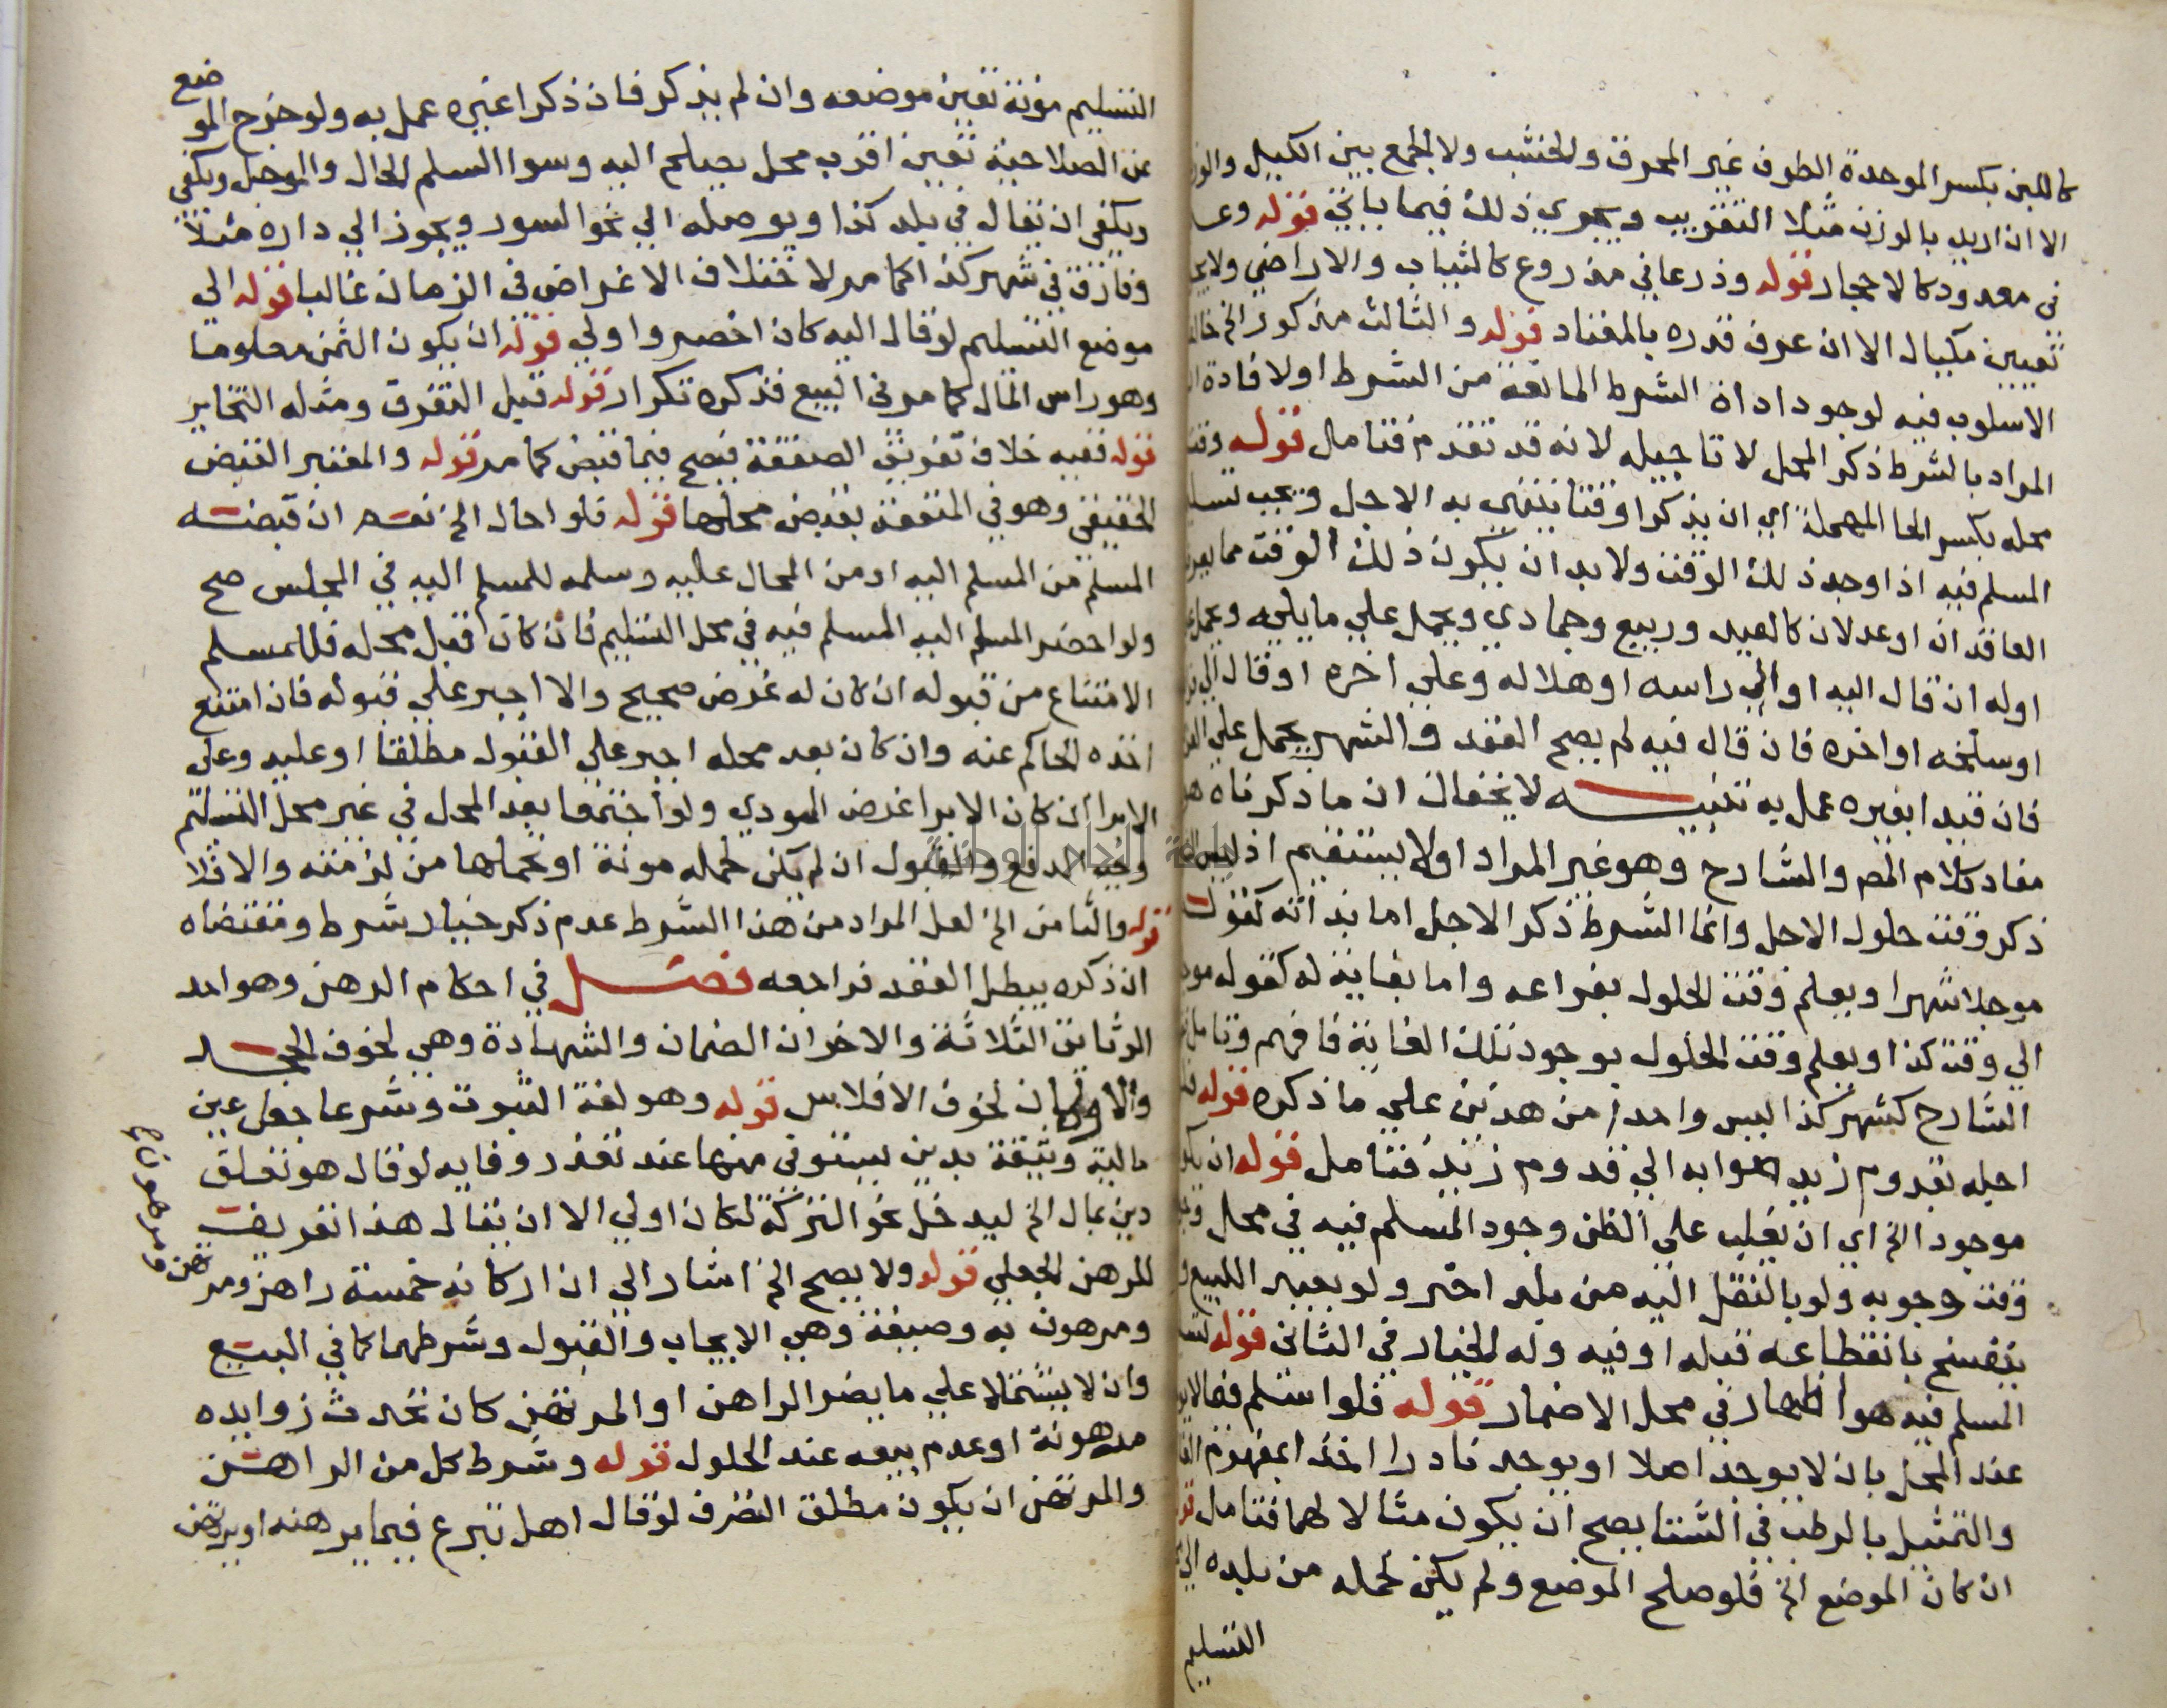 كاللبن بكسر الموحدة الطوف غير المحرق والخشب ولا الجمع بين الكيل والوزن
الا ان اريد بالوزن مثلا التقريب ويجوي ذلك فيما ياتي قوله وعد
في معدود كالاحجار قوله وذرعا في مذروع كالثياب والاراضي ولا
تعيين مكيال الا ان عرف قدره بالمعتاد قوله والثالث مذكور الخ خالف
الاسلوب فيه لوجود اداة الشرط المانعة من الشرط او لافادة
المراد بالشرط ذكر المحل لا تاجيله لانه قد تقدم فتامل قوله وقت
محله بكسر الحا المهملة اي ان يذكرا وقتا ينتهي به الاجل ويجب تسليم
المسلم فيه اذا وجد ذلك الوقت ولا بد ان يكون ذلك الوقت مما يعرفه
العاقدان او عدلان كالعيد وربيع وجمادي ويحمل علي ما يليه ويحمل علي
اوله ان قال اليه او الي راسه او هلاله وعلي اخره او قال الي
او سلخه او اخره فان قال فيه لم يصح العقد والشهر يحمل علي
فان قيد ابغيره عمل به تنبيه لا يخفاك ان ما ذكرناه هو
مفاد كلام المص والشارح وهو غير المراد او لا يستقيم اذ ليس
ذكر وقت حلول الاجل وانما الشرط ذكر الاجل اما بذاته كقوله
موجلا شهرا ويعلم وقت الحلول بفراغه واما بغاية له كقوله موجلا
الي وقت كذا ويعلم وقت الحلول بوجود تلك الغاية فافهم وتامل
الشارح كشهر كذا ليس واحدا من هذين علي ما ذكره قوله
اجله بقدوم زيد صوابه الي قدوم زيد فتامل قوله ان يكون
موجودا الخ اي ان يغلب علي الظن وجود المسلم فيه في محل
وقت وجوبه ولو بالنقل اليه من بلد اخر ولو بعيد للبيع
ينفسخ بانقطاعه قبله او فيه وله الخيار في الثاني قوله
المسلم فيه هو اظهار في محل الاضمار قوله فلو اسلم فيما لا
عند المحل بان لا يوجد اصلا او يوجد نادرا اخذا بمفهوم
والتمثيل بالرطب في الشتا يصح ان يكون مثالا لهما فتامل
ان كان الموضع الخ فلو صلح الموضع ولم يكن لحمله من بلده الي
التسليم
التسليم مونة تعين موضعه وان لم يذكر فان ذكرا غيره عمل به ولو خرج الموضع
عن الصلاحية تعين اقرب محل يصلح اليه وسوا السلم الحال والموجل ويكفي
ويكفي ان يقال في بلد كذا ويوصله الي نحو السور ويجوز الي داره مثلا
وفارق في شهر كذا كما مر لاختلاف الاغراض في الزمان غالبا قوله الي
موضع التسليم لو قال اليه كان اخصر واولي قوله ان يكون الثمن معلوما
وهو راس المال كما مر في البيع فذكره تكرار قوله قبل التفرق ومثله التخاير
قوله ففيه خلاف تفريق الصفقة فيصح فيما قبض كما مر قوله والمعتبر القبض
الحقيقي وهو في المنفعة بقبض محلها قوله فلو احال الخ نعم ان قبضه
المسلم من المسلم اليه او من المحال عليه وسلمه للمسلم اليه في المجلس صح
ولو احضر المسلم اليه المسلم فيه في محل التسليم فان كان قبل محله فللمسلم
الامتناع من قبوله ان كان له غرض صحيح والا اجبر علي قبوله فان امتنع
اخذه الحاكم عنه وان كان بعد محله اجبر علي القبول مطلقا او عليه وعلي
الابرا ان كان الابرا غرض المودي ولو اجتمعا بعد المحل في غير محل التسليم
وجب الدفع والقبول ان لم يكن لحمله مونة او تحملها من لزمته والا فلا
قوله والثامن الخ لعل المراد من هذا الشرط عدم ذكر خيار شرط ومقتضاه
ان ذكره يبطل العقد فراجعه فصل في احكام الرهن وهو احد
الوثائق الثلاثة والاخران الضمان والشهادة وهي لخوف الجحد
والاولان لخوف الافلاس قوله وهو لغة الثبوت وشرعا جعل عين
مالية وثيقة بدين يستوفي منها عند تعذر وفايه لو قال هو تعلق
دين بمال الخ ليدخل نحو التركة لكان اولي الا ان يقال هذا تعريف
للرهن الجعلي قوله ولا يصح الخ اشار الي ان اركانه خمسة راهن ومرتهن ومرهون
ومرهون به وصيغة وهي الايجاب والقبول وشرطهما كما في البيع
وان لا يشتملا علي ما يضر الراهن او المرتهن كان تحدث زوايده
مرهونة او عدم بيعه عند الحلول قوله وشرط كل من الراهن
والمرتهن ان يكون مطلق التصرف لو قال اهل تبرع فيما يرهنه او يرتهن